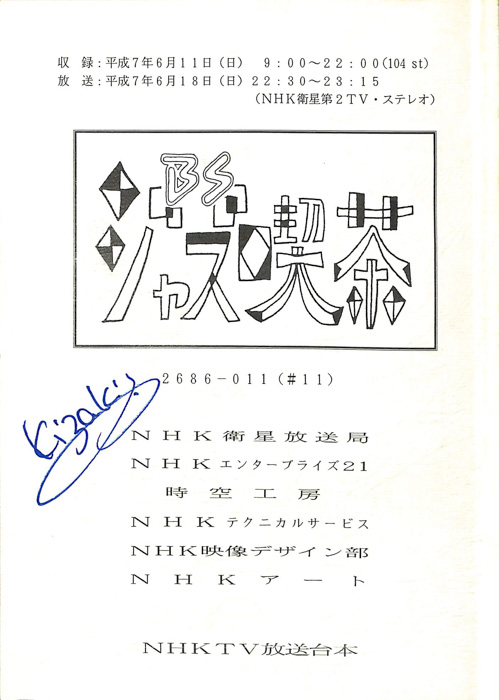 収　録：平成7年6月11日（日）　9：00～22：00(104 st)
放　送：平成7年6月18日（日）22：30～23：15
（NHK衛星第2TV・ステレオ）
BS
ジャズ喫茶
2686-011(#11)
Kizaki
NHK衛星放送局
NHKエンタープライズ21
時空工房
NHKテクニカルサービス
NHK映像デザイン部
NHKアート
NHKTV放送台本